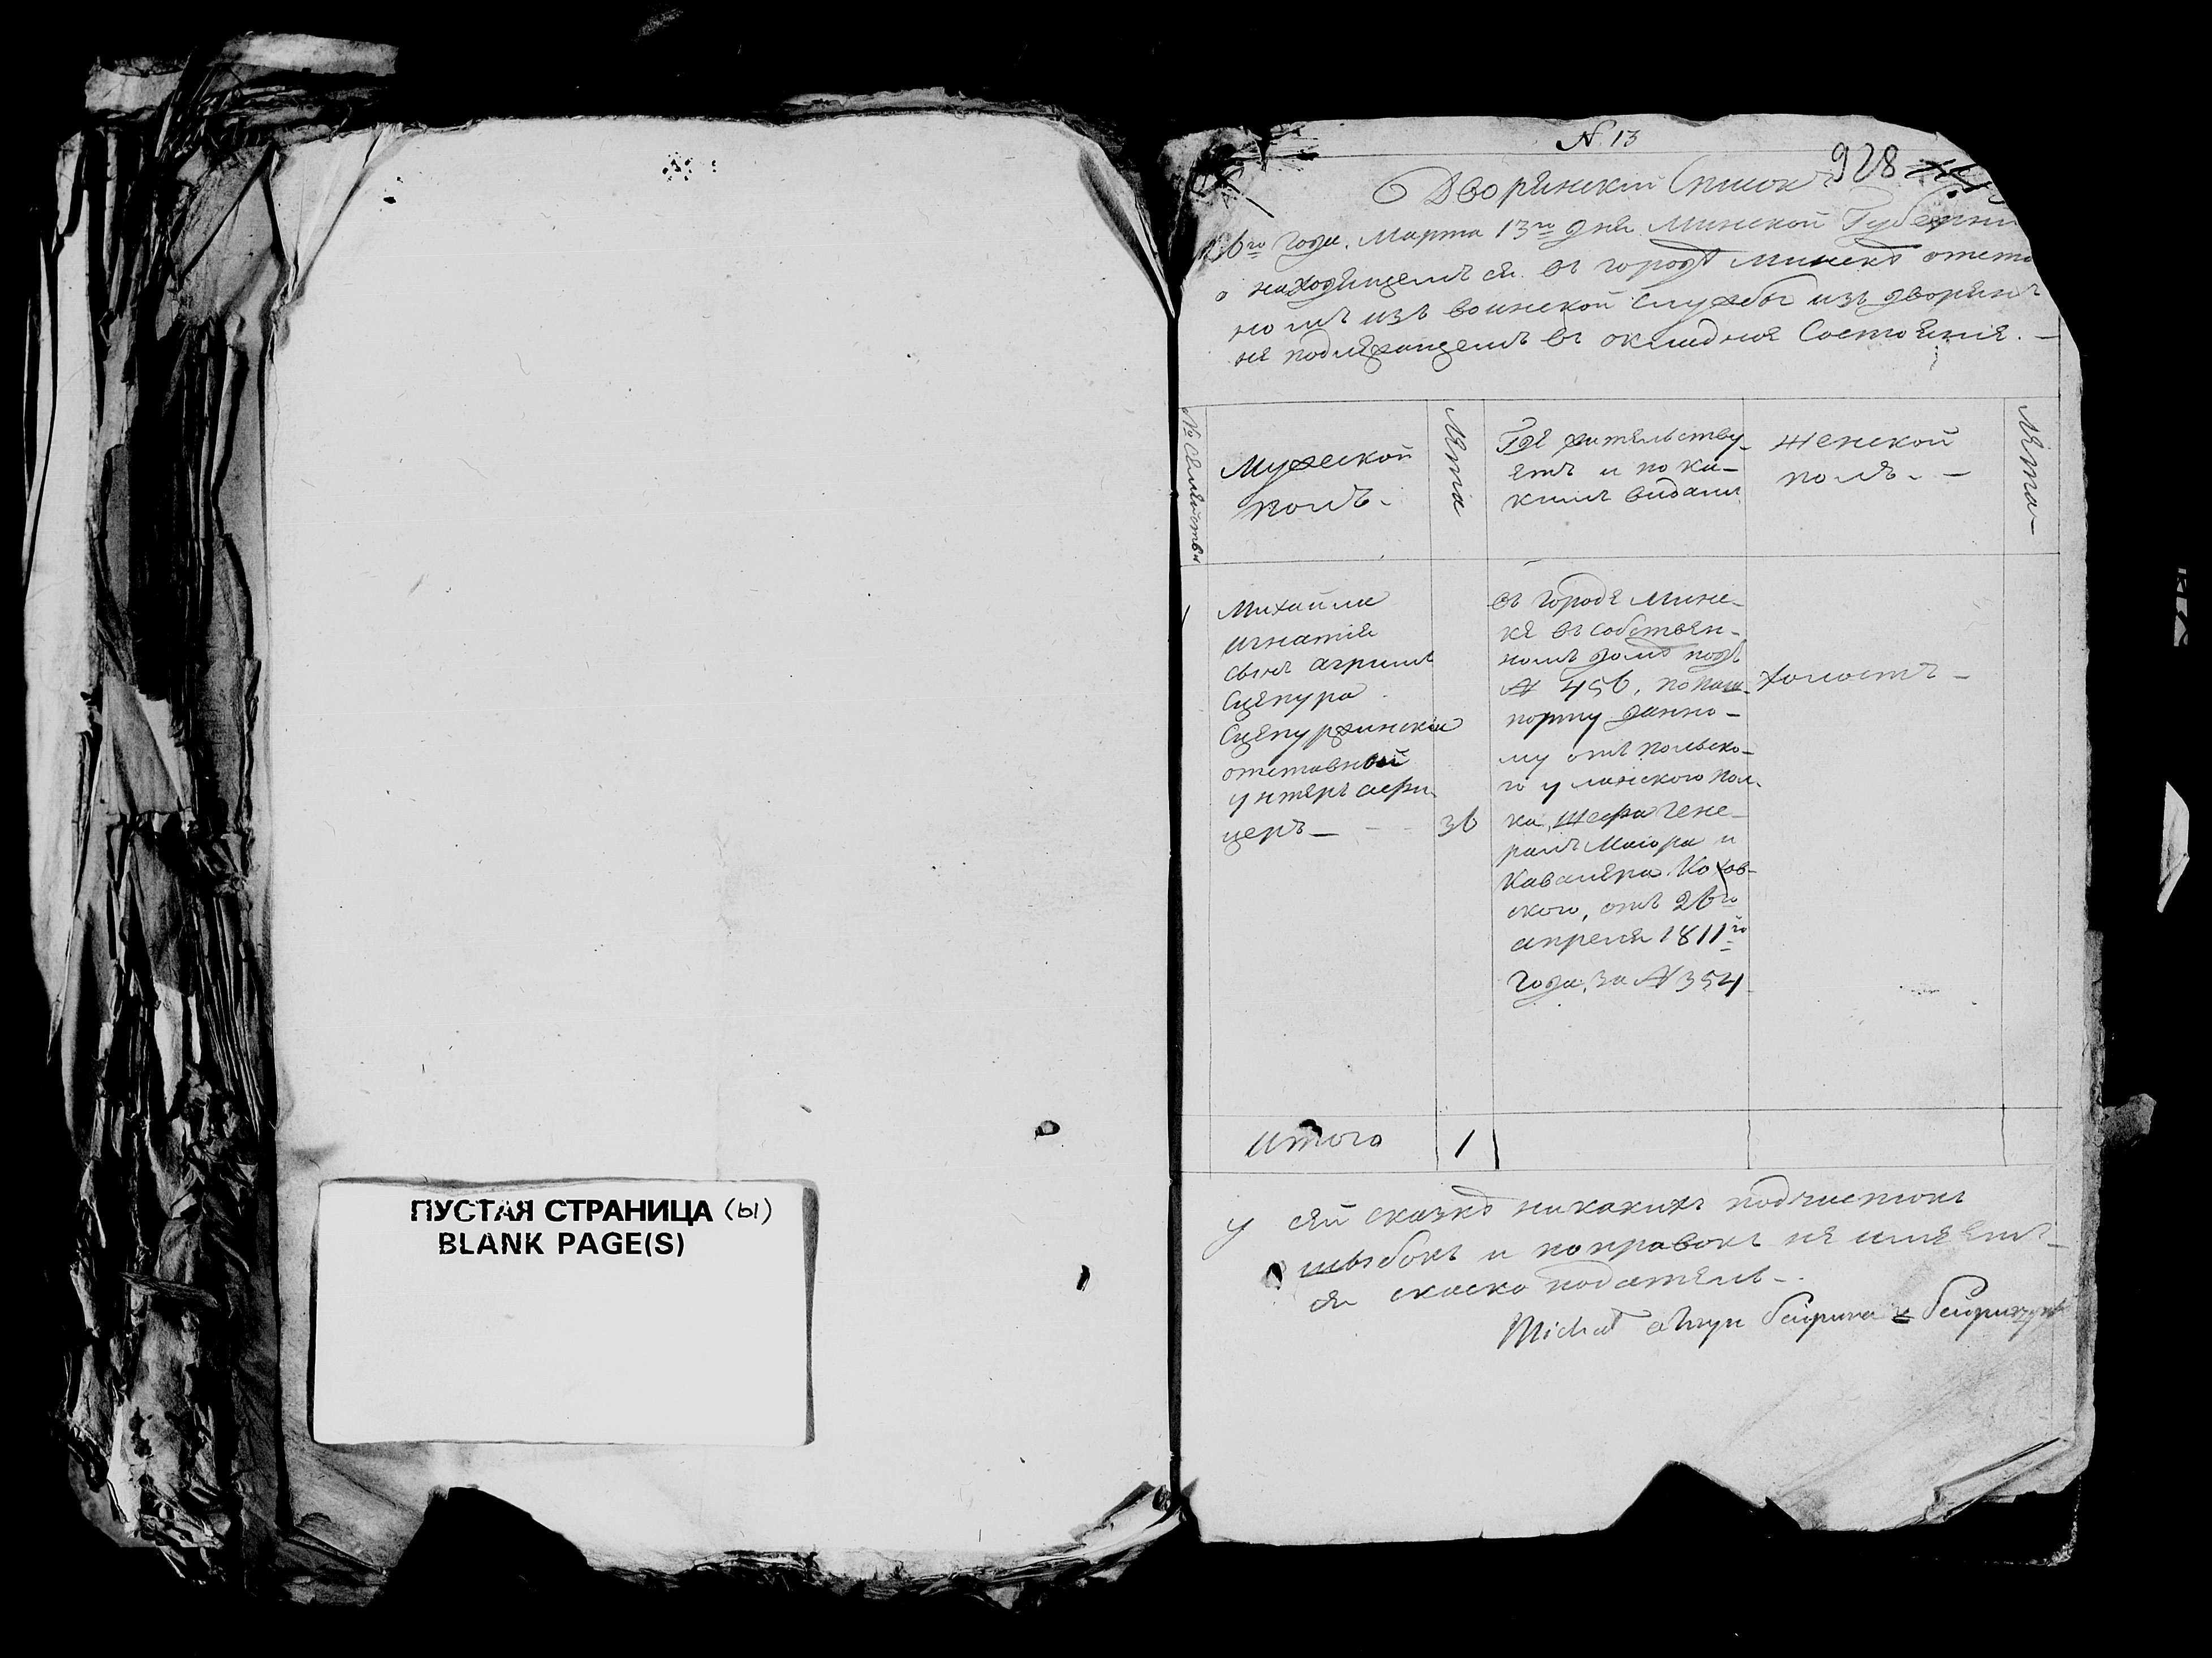 ПУСТАЯ СТРАНИЦА (ы)
BLANK PAGE(S)
N. 13
928
Дворянский Список
6го года. Марта 13го дня Минской Губерни
о находящемъся въ городѣ Минскѣ отста
номъ изъ воинской службы изъ дворянъ
не подлежащемъ въ окладноя Состояния. —
№ Семейства
Мужеской
полъ.
Лета
Где жительству-
етъ и по ка-
кимъ видамъ
женской
полъ. —
Лета
1
Михайла
игнатія
сынъ
Сцепура
Сцепуржинскій
отставной
унтеръ афи-
церъ —
36
въ городе Минс-
ке въ собствен-
номъ домѣ подъ
N 456, по паш-
порту данно-
му отъ польско-
го уланского пол-
ка, Шефа Гене-
ралъ Маиора и
Кавалера. Кохов-
ского, отъ 26го
апреля 1811го
года, за N 354
холостъ —
итого
1
У сей сказкѣ никакихъ подчистокъ
шыбокъ и поправокъ не имеетъ-
ся скаско податель —
Michał